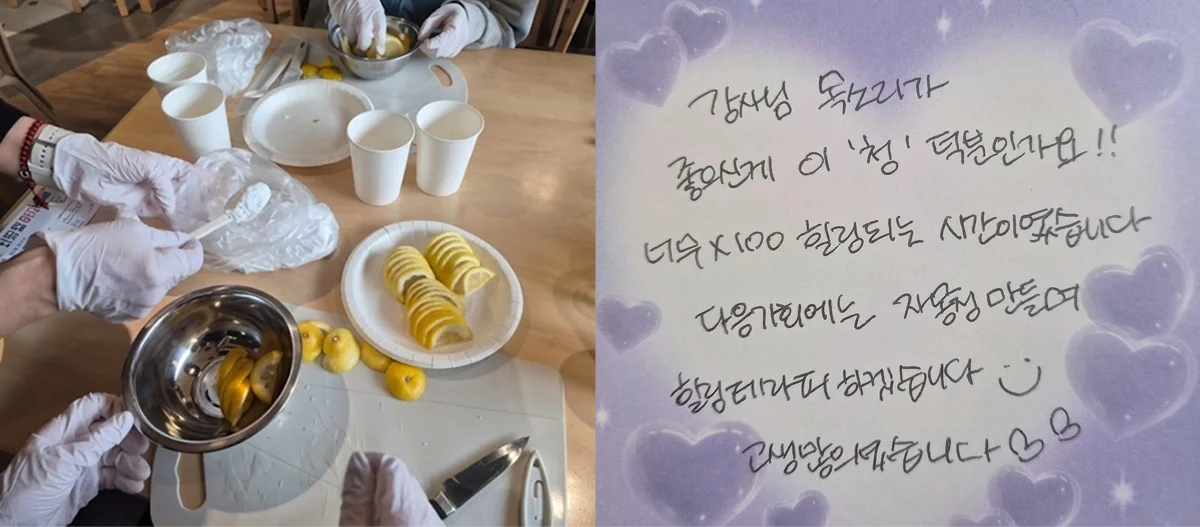 강사님 목소리가
좋으신게 이 '청' 덕분인가요!!
너무×100 힐링되는 시간이였습니다
다음기회에는 자몽청 만들며
힐링테라피 하겠습니다 :)
고생많으셨습니다 ♡♡